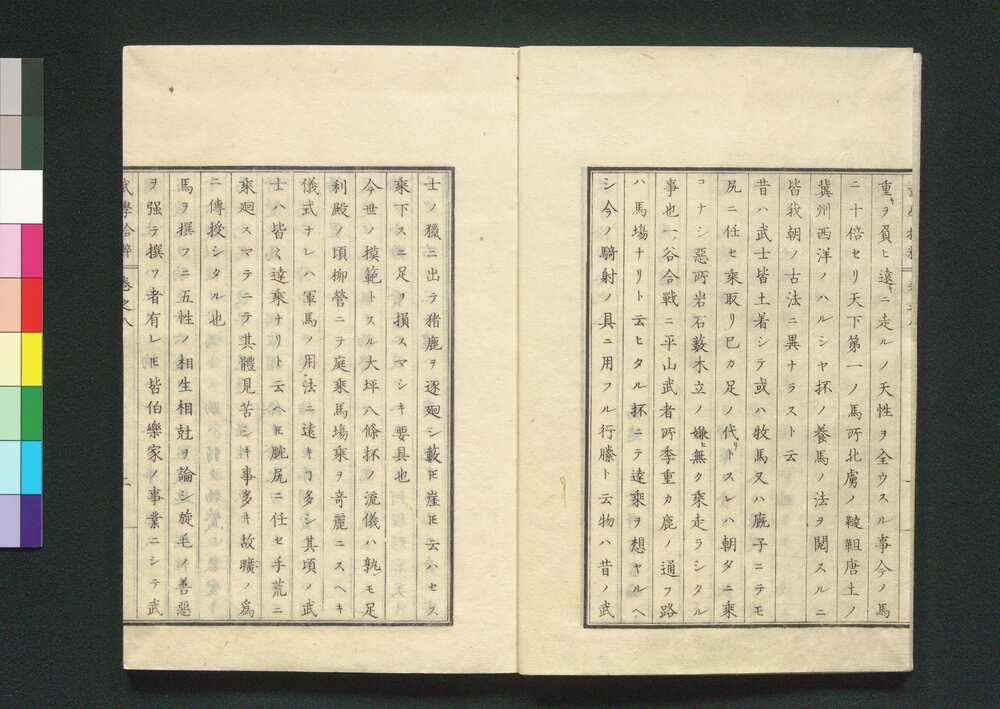 重キヲ負ヒ遠キニ走ルノ天性ヲ全ウスル事今ノ馬
ニ十倍セリ天下第一ノ馬所北虜ノ韃靼唐土ノ
冀州西洋ノハルシヤ抔ノ養馬ノ法ヲ閲スルニ
皆我朝ノ古法ニ異ナラスト云
昔ハ武士皆土着シテ或ハ牧馬又ハ廐子ニテモ
尻ニ任セ乗取リ已カ足ノ代リトスレハ朝夕ニ乗
コナシ惡所岩石藪木立ノ嫌ヒ無ク乗走ラシタル
事也一ノ谷合戦ニ平山武者所季重カ鹿ノ通フ路
ハ馬塲ナリト云ヒタル抔ニテ遠乗ヲ想ヤルヘ
シ今ノ騎射ノ具ニ用フル行縢ト云物ハ昔ノ武
士ノ獵ニ出テ猪鹿ヲ逐廻シ藪𪜈崖𪜈云ハセス
乗下スニ足ヲ損スマシキ要具也
今世ノ摸範トスル大坪八條抔ノ流儀ハ孰レモ足
利殿ノ頃柳營ニテ庭乗馬塲乗ヲ竒麗ニスヘキ
儀式ナレハ軍馬ノ用法ニ遠キヿ多シ其頃ノ武
士ハ皆々達乗ナリト云ヘ𪜈腕尻ニ任セ手荒ニ
乗廻スマテニテ其體見苦シキ事多キ故曠ノ為
ニ傳授シタル也
馬ヲ撰フニ五性ノ相生相尅ヲ論シ旋毛ノ善惡
ヲ强テ撰フ者有レ𪜈皆伯樂家ノ事業ニシテ武
武學拾粹 卷之八